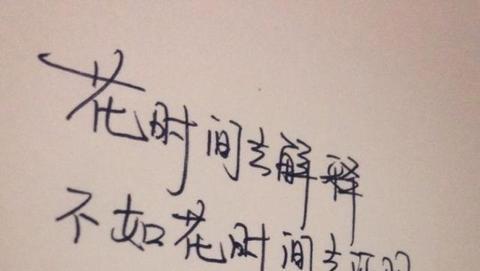 花时间去解释
不如花时间去